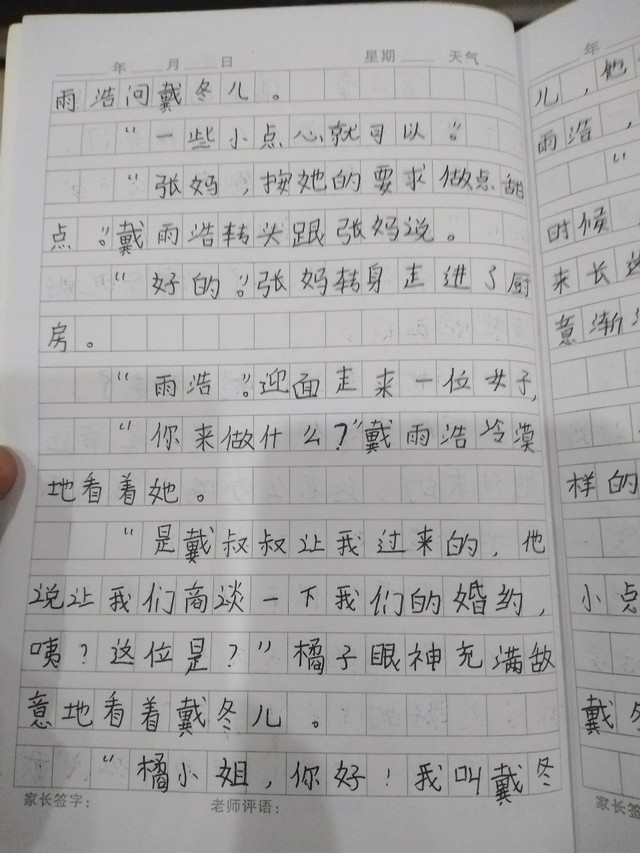 年 月 日 星期 天气
雨浩问戴冬儿。
“一些小点心就可以。”
“张妈，按她的要求做点甜
点。”戴雨浩转头跟张妈说。
“好的。”张妈转身走进了厨
房。
“雨浩。”迎面走来一位女子，
“你来做什么？”戴雨浩冷漠
地看着她。
“是戴叔叔让我过来的，他
说让我们商谈一下我们的婚约，
咦？这位是？”橘子眼神充满敌
意地看着戴冬儿。
“橘小姐，你好！我叫戴冬
家长签字： 老师评语：
年
儿，他
雨浩，
“
时候
来长这
意渐
样的
小点
戴冬
家长签